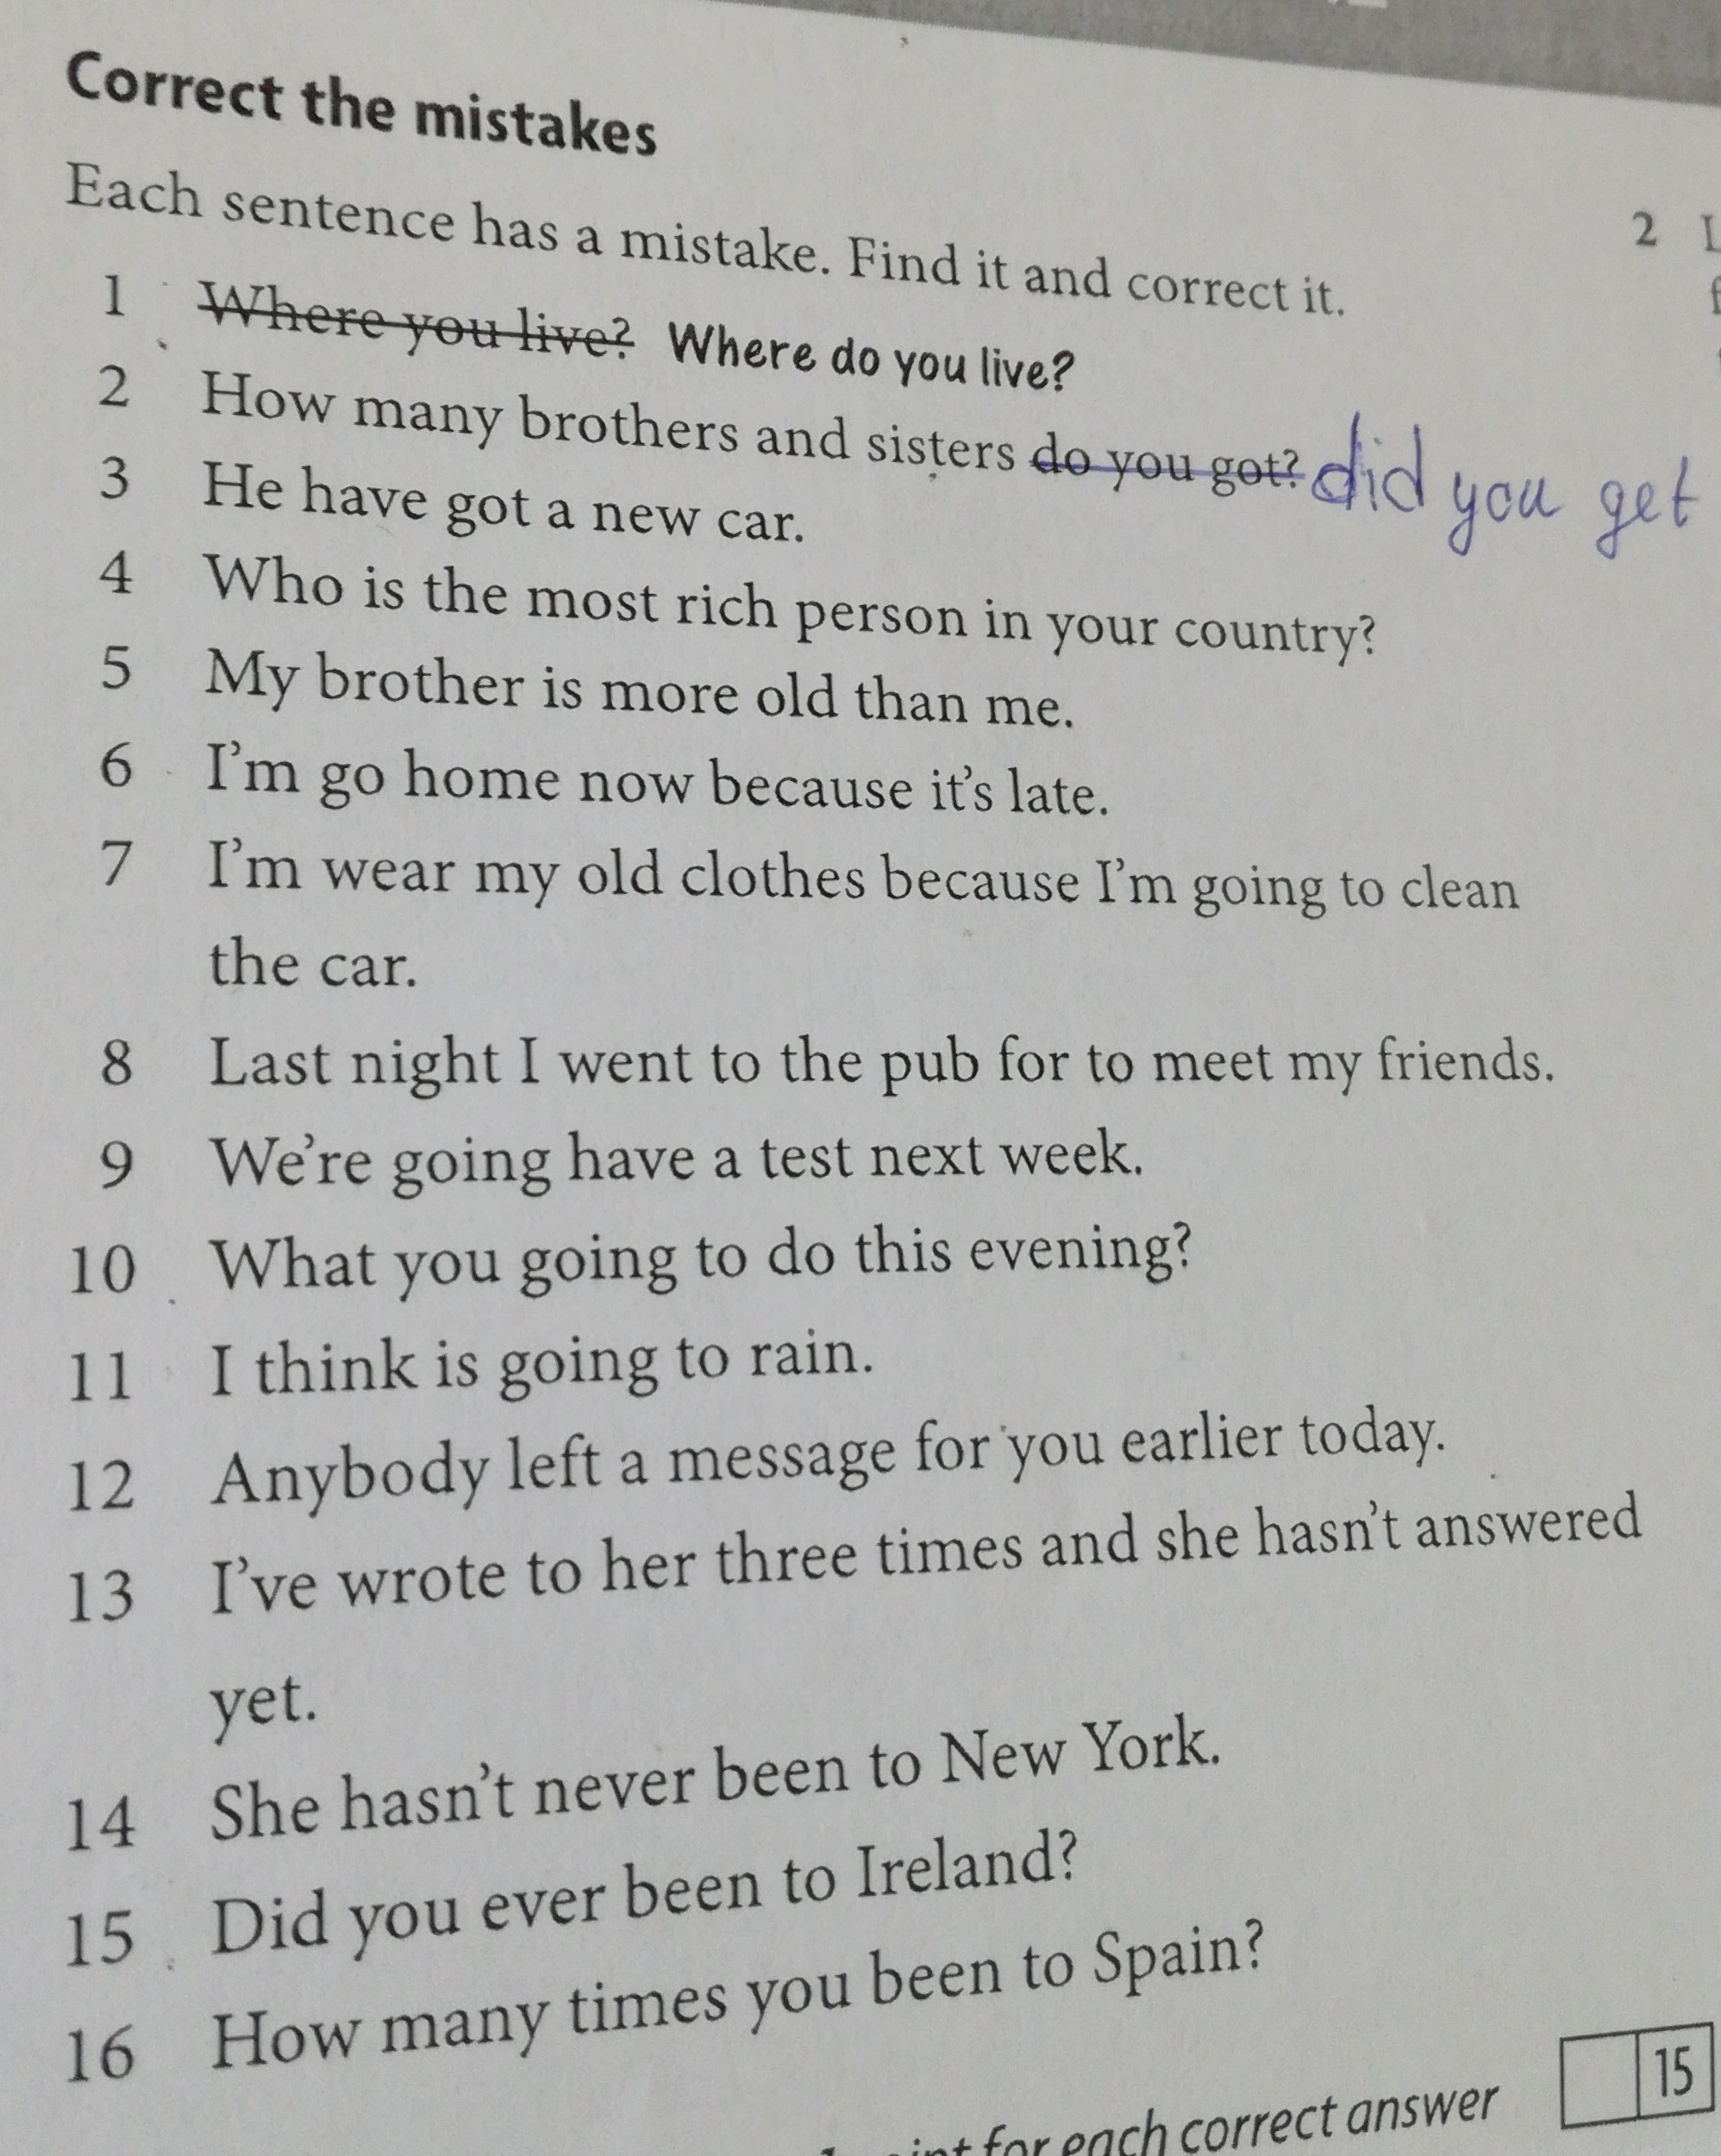 Correct the mistakes
Each sentence has a mistake. Find it and correct it.
1 Where you live? Where do you live?
2 How many brothers and sisters do you got? did you get
3 He have got a new car.
4 Who is the most rich person in your country?
5 My brother is more old than me.
6 I'm go home now because it's late.
7 I'm wear my old clothes because I'm going to clean
the car.
8 Last night I went to the pub for to meet my friends.
9 We're going have a test next week.
10 What you going to do this evening?
11 I think is going to rain.
12 Anybody left a message for you earlier today.
13 I've wrote to her three times and she hasn't answered
yet.
14 She hasn't never been to New York.
15 Did you ever been to Ireland?
16 How many times you been to Spain?
for each correct answer
15
2